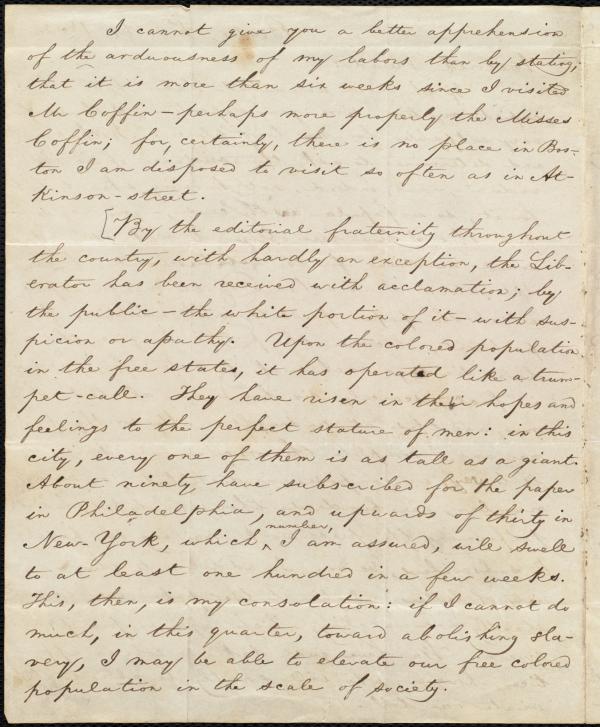 I cannot give you a better apprehension
of the arduousness of my labors than by stating,
that it is more than six weeks since I visited
Mr Coffin—perhaps more properly the Misses
Coffin; for, certainly, there is no place in Bos-
ton I am disposed to visit so often as in At-
kinson-street.
[By the editorial fraternity throughout
the country, with hardly an exception, the Lib-
erator has been received with acclamation; by
the public—the white portion of it—with sus-
picion or apathy. Upon the colored population
in the free states, it has operated like a trum-
pet-call. They have risen in their hopes and
feelings to the perfect stature of men: in this
city, every one of them is as tall as a giant.
About ninety have subscribed for the paper
in Philadelphia, and upwards of thirty in
New-York, which number, I am assured, will swell
to at least one hundred in a few weeks.
This, then, is my consolation: if I cannot do
much, in this quarter, toward abolishing sla-
very, I may be able to elevate our free colored
population in the scale of society.